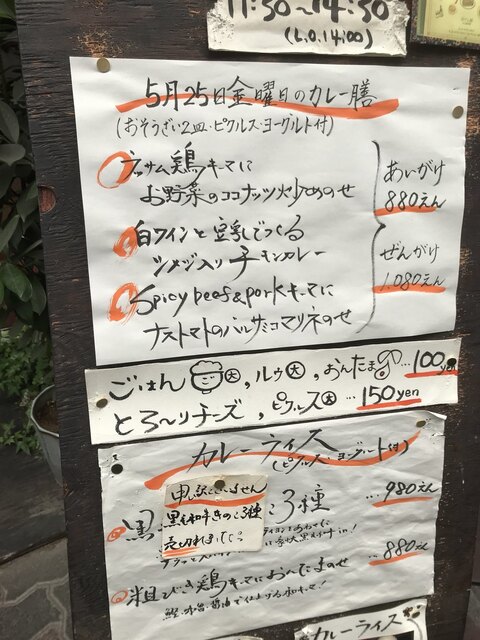 11:30~14:30
(L.O.14:00)
5月25日金曜日のカレー膳
(おそうざい2皿・ピクルス・ヨーグルト付)
ラッサム鶏キーマに
お野菜のココナッツ炒めのせ
あいがけ
880えん
白ワインと豆乳でつくる
シメジ入りチキンカレー
ぜんがけ
1,080えん
Spicy beef&porkキーマに
ナストマトのバルサミコマリネのせ
ごはん大,ルゥ大,おんたま…100yen
とろ〜りチーズ,ピクルス大…150yen
カレーライス
(ピクルス・ヨーグルト付)
申し訳ございません
黒毛和牛きのこ3種
売切れました
黒 こ3種 …980えん
粗びき鶏キーマにおんたまのせ …880えん
カレーライス